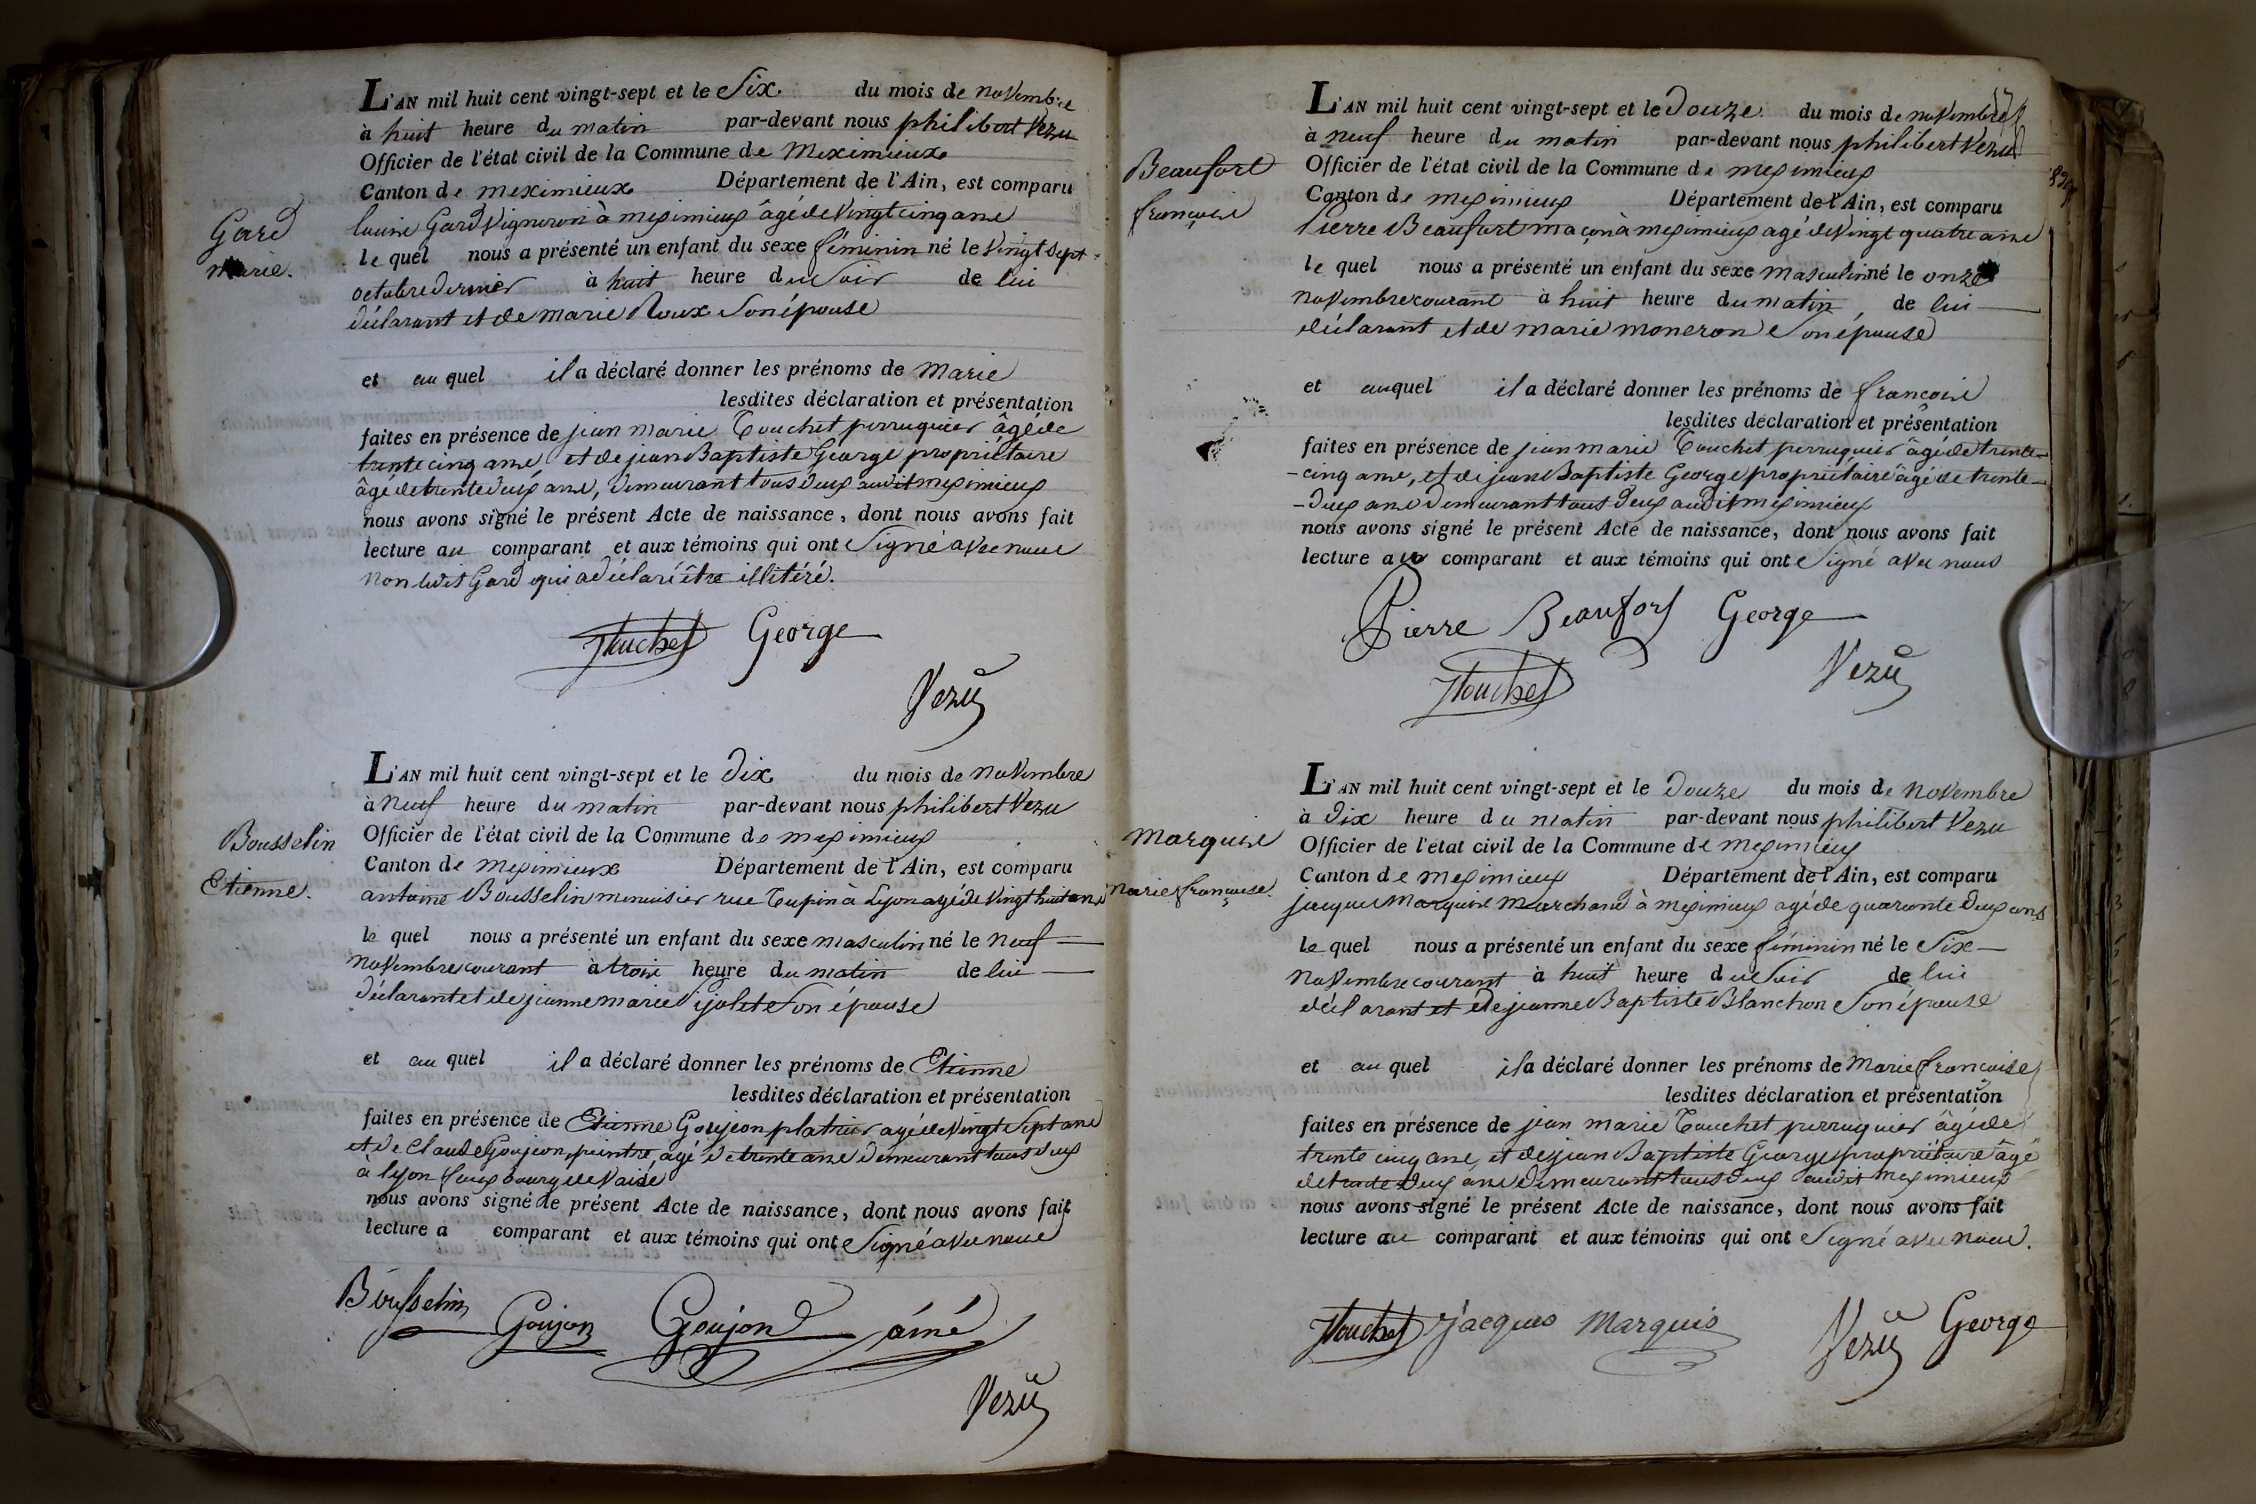 L'AN mil huit cent vingt-sept et le Six du mois de novembre
à huit heure du matin par-devant nous philibert Vezu
Officier de l'état civil de la Commune de Meximieux
Canton de meximieux Département de l'Ain, est comparu
Gard Vigneron à meximieux âgé de Vingt cinq ans
Gard
Marie.
le quel nous a présenté un enfant du sexe féminin né le Vingt Sept
octobre dernier à huit heure du Soir de lui
déclarant et de marie Roux Son épouse
et au quel il a déclaré donner les prénoms de Marie
lesdites déclaration et présentation
faites en présence de jean marie Touchet perruquier âgé de
trente cinq ans et de jean Baptiste George propriétaire
âgé de trente deux ans, demeurant tous deux audit meximieux
nous avons signé le présent Acte de naissance, dont nous avons fait
lecture au comparant et aux témoins qui ont Signé avec nous
non ledit Gard qui a déclaré être illitéré.
JTouchet George
Vezu
L'AN mil huit cent vingt-sept et le Dix du mois de novembre
à neuf heure du matin par-devant nous philibert Vezu
Officier de l'état civil de la Commune de meximieux
Canton de Meximieux Département de l'Ain, est comparu
Bousselin
Etienne.
antoine Bousselin menuisier rue Tupin à Lyon agé de Vingt huit ans
le quel nous a présenté un enfant du sexe masculin né le neuf
novembre courant à trois heure du matin de lui
déclarant et de jeanne marie Son épouse
et au quel il a déclaré donner les prénoms de Etienne
lesdites déclaration et présentation
faites en présence de Etienne Goujeon platrier agé de Vingt Sept ans
et de Claude Goujeon, peintre, agé de trente ans demeurant tous deux
à lyon faux bourg de Vaise
nous avons signé le présent Acte de naissance, dont nous avons fait
lecture a comparant et aux témoins qui ont Signé avec nous
Bousselin Goujon Goujon ainé
Vezu
L'AN mil huit cent vingt-sept et le Douze du mois de novembre
à neuf heure du matin par-devant nous philibert Vezu
Officier de l'état civil de la Commune de meximieux
Canton de meximieux Département de l'Ain, est comparu
Beaufort
françois
Pierre Beaufort maçon à meximieux agé de Vingt quatre ans
le quel nous a présenté un enfant du sexe masculin né le onze
novembre courant à huit heure du matin de lui
déclarant et de marie moneron Son épouse
et auquel il a déclaré donner les prénoms de françois
lesdites déclaration et présentation
faites en présence de jean marie Touchet perruquier âgé de trente-
-cinq ans, et de jean Baptiste George propriétaire âgé de trente-
-deux ans demeurant tous deux audit meximieux
nous avons signé le présent Acte de naissance, dont nous avons fait
lecture au comparant et aux témoins qui ont Signé avec nous
Pierre Beaufort George
JTouchet Vezu
L'AN mil huit cent vingt-sept et le Douze du mois de novembre
à Dix heure du matin par-devant nous philibert Vezu
Officier de l'état civil de la Commune de meximieux
Canton de meximieux Département de l'Ain, est comparu
Marquise
marie françoise.
jacques Marchand à meximieux agé de quarante Deux ans
le quel nous a présenté un enfant du sexe féminin né le Six
novembre courant à huit heure du Soir de lui
déclarant et de jeanne Baptiste Blanchon Son épouse
et au quel il a déclaré donner les prénoms de Marie françoise
lesdites déclaration et présentation
faites en présence de jean marie Touchet perruquier âgé de
trente cinq ans, et de jean Baptiste George propriétaire âgé
de trente Deux ans Demeurant tous deux audit meximieux
nous avons signé le présent Acte de naissance, dont nous avons fait
lecture au comparant et aux témoins qui ont Signé avec nous.
JTouchet Jacques Marquis Vezu George